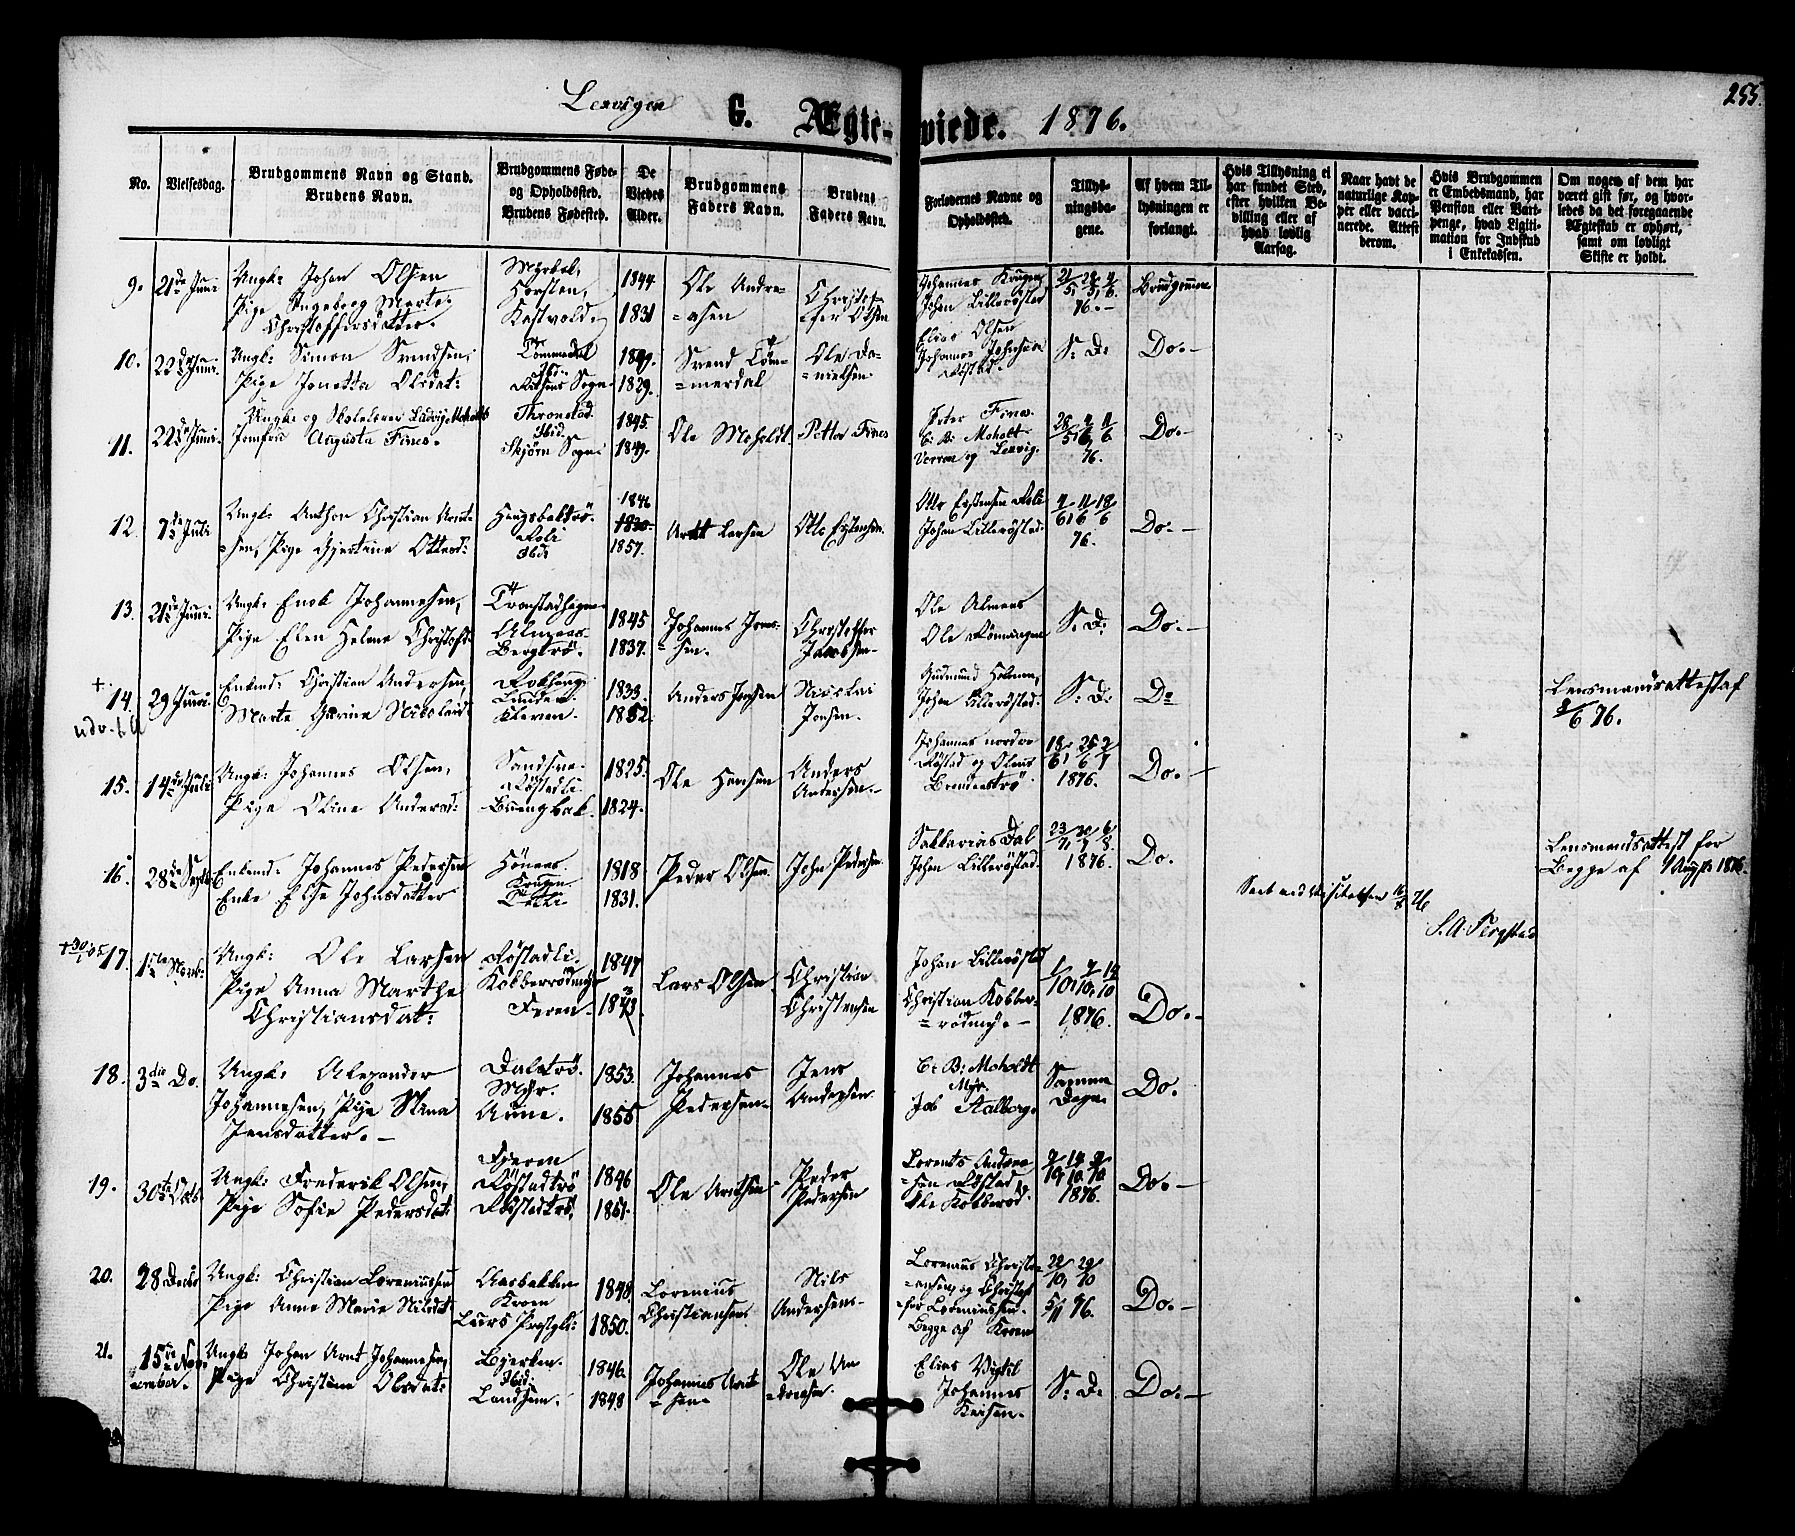 Lexvigen G. Ægte-viede. 1876. 255.
No.
Vielsesdag.
Brudgommens Navn og Stand.
Brudens Navn.
Brudgommens Føde-
og Opholdssted.
Brudens Fødested.
De
Viedes
Alder.
Brudgommens
Faders Navn.
Brudens
Faders Navn.
Forlovernes Navne og
Opholdssted.
Tillys-
ningsda-
gene.
Af hvem Til-
lysningen er
forlangt.
Hvis Tillysning ei
har fundet Sted,
efter hvilken Be-
villing eller af
hvad lovlig
Aarsag.
Naar havt de
naturlige Kop-
per eller vacci-
nerede. Attest
derom.
Hvis Brudgommen
er Embedsmand, har
Pension eller Vart-
penge, hvad Ligiti-
mation for Indskud
i Enkekassen.
Om nogen af dem har
været gift før, og hvor-
ledes da det foregaaende
Ægteskab er ophørt,
samt om lovligt
Skifte er holdt.
9. 21de Juni Ungk: Johan Olsen
Pige Ingeborg Marte
Christoffersdatter.
Myrbek, Horsten,
1844
1831
Ole Andre-
=asen
Christof-
fer Olsen
Johannes Krogen,
Johan Lillerøstad
21/5 28/5 4/6
76. -
Brudgommen
10. 22de Juni Ungk: Simon Svendsen,
Pige Jonetta Olsdat:
Tømmerdal
Ibid:
Rissens Sogn
1849.
1829.
Svend Tøm-
=merdal
Ole Da-
=nielsen.
Elias Olsen
Johannes Johnsen
Røstad.
S: D:
Do. -
11. 22de Juni Ungk: og Skolelærer Ludvig Moholdt
Jomfru Augusta Fines.
Thronstad.
Ibid.
Skjørn Sogn.
1845.
1849.
Ole Moholdt
Petter Fines
Peter Fines.
E: B: Moholt.
Verran og Lexvig.
28/5, 4/6 11/6
76.
Do. -
12. 7de Juli Ungk: Anthon Christian Arnt-
sen, Pige Gjertine Ottersd:
Hengsbaktrø.
Roli
Ibid:
1846
1857.
Arnt Larsen
Otto Eystensen
Otto Eystensen Roli
Johan Lillerøstad.
4/6, 11/6 18/6
76.
Do. -
13. 21de Juni. Ungk: Enok Johannesen,
Pige Elen Helene Christofd:
Almaas.
Bergtrø.
1845
1837.
Johannes Jens-
=sen.
Christoffer
Jakobsen
Ole Almaas
Ole Rønningen
S: D:
Do. -
14. 29 Juni. Enkmd: Christian Andersen,
Marte Gurine Nicolaid:
+
udv. til
1833.
1852.
Anders Jonsen
Nicolai
Jonsen.
Gudmund Holmen,
Johan Lillerøstad.
S: D:
Do
Lensmandsattest af
2/6 76.
15. 14de Juli Ungk: Johannes Olsen,
Pige Oline Andersd:
Sandsve.
Røstadli
1825.
1824.
Ole Hansen
Anders
Andersen. -
Johannes nordre
Røstad og Olaus
Brandestrø
18/6, 25/6 2/7
1876.
Do. -
16. 28de Septbr Enkmd: Johannes Pedersen
Enke Else Johnsdatter
Hønees.
Krogen.
1818
1831.
Peder Olsen.
John Pedersen
Sakkarias Dal
Johan Lillerøstad.
23/7, 30/7 6/8
1876.
Do.
Lensmandsattest for
Begge af 1 August 1876.
Seet ved Visitatsen 16/8 76
17. 1ste Novb: Ungk: Ole Larsen
Pige Anna Marthe
Christiansdat:
Røstadli.
Kobberrødmyr
Feren.
1847
1843.
Lars Olsen
Christian
Christensen
Johan Lillerøstad
Christian Kobber-
=rødmyr. -
1/10, 7/10, 14/10
1876.
Do. -
18. 3die Do. Ungk: Alexander
Johannesen, Pige Stina
Jensdatter. -
Dalstrø.
Myr.
Aune.
1853.
1855
Johannes
Pedersen
Jens
Andersen.
E: B: Moholdt
Myr.
Job Aalberg.
Samme
Dage.
Do.
19. 30te Octb. Ungk: Frederik Olsen,
Pige Sofie Pedersdat:
Fjeren
Røstadtrø
Røstadtrø.
1846
1851.
Ole Arntsen
Peder
Pedersen
Lorents Andrea
=sen Røstad,
Ole Kobberød.
1876.
Do. -
20. 28 Decbr Ungk: Christian Loreniussen
Pige Anne Marie Nilsdat:
Aasbakken
Kroen
Lurs Prestgld:
1848
1850.
Lorenius
Christiansen.
Nils
Andersen.
Lorenius Christi-
=ansen og Christof-
=fer Loreniussen.
Begge af Kroen
22/10, 29/10
5/11 76.
Do. -
21. 15de Nov
=ember. Ungk: Johan Arnt Johannesen,
Pige Christine Olsdat:
Bjerken.
Ibid:
Landsem.
1846.
1848
Johannes Arnt
=sen
Ole An
=dreasen.
Elias Vigtil
Johannes
Kaisen.
S: D:
Do. -